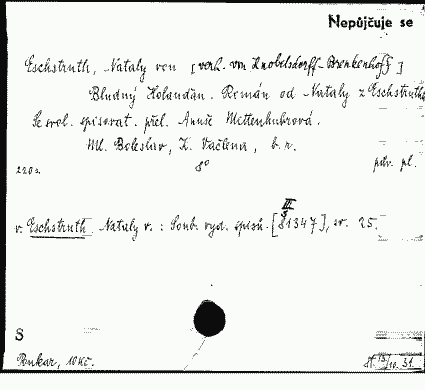 Nepůjčuje se
Eschstruth, Nataly von [verh. von Knobelsdorff-Brenkenhoff]
Bludný Holanďan. Román od Nataly z Eschstruth
Se svol. spisovat. přel. Anuše Mittenhubrová.
Ml. Boleslav, K. Vačlena, b. r.
220 s. 8° pův. pl.
v. Eschstruth Nataly v. : Soub. vyd. spisů. [
III
S
1347], sv. 25.
S
Punkar, 10 Kč.
13/10. 31.